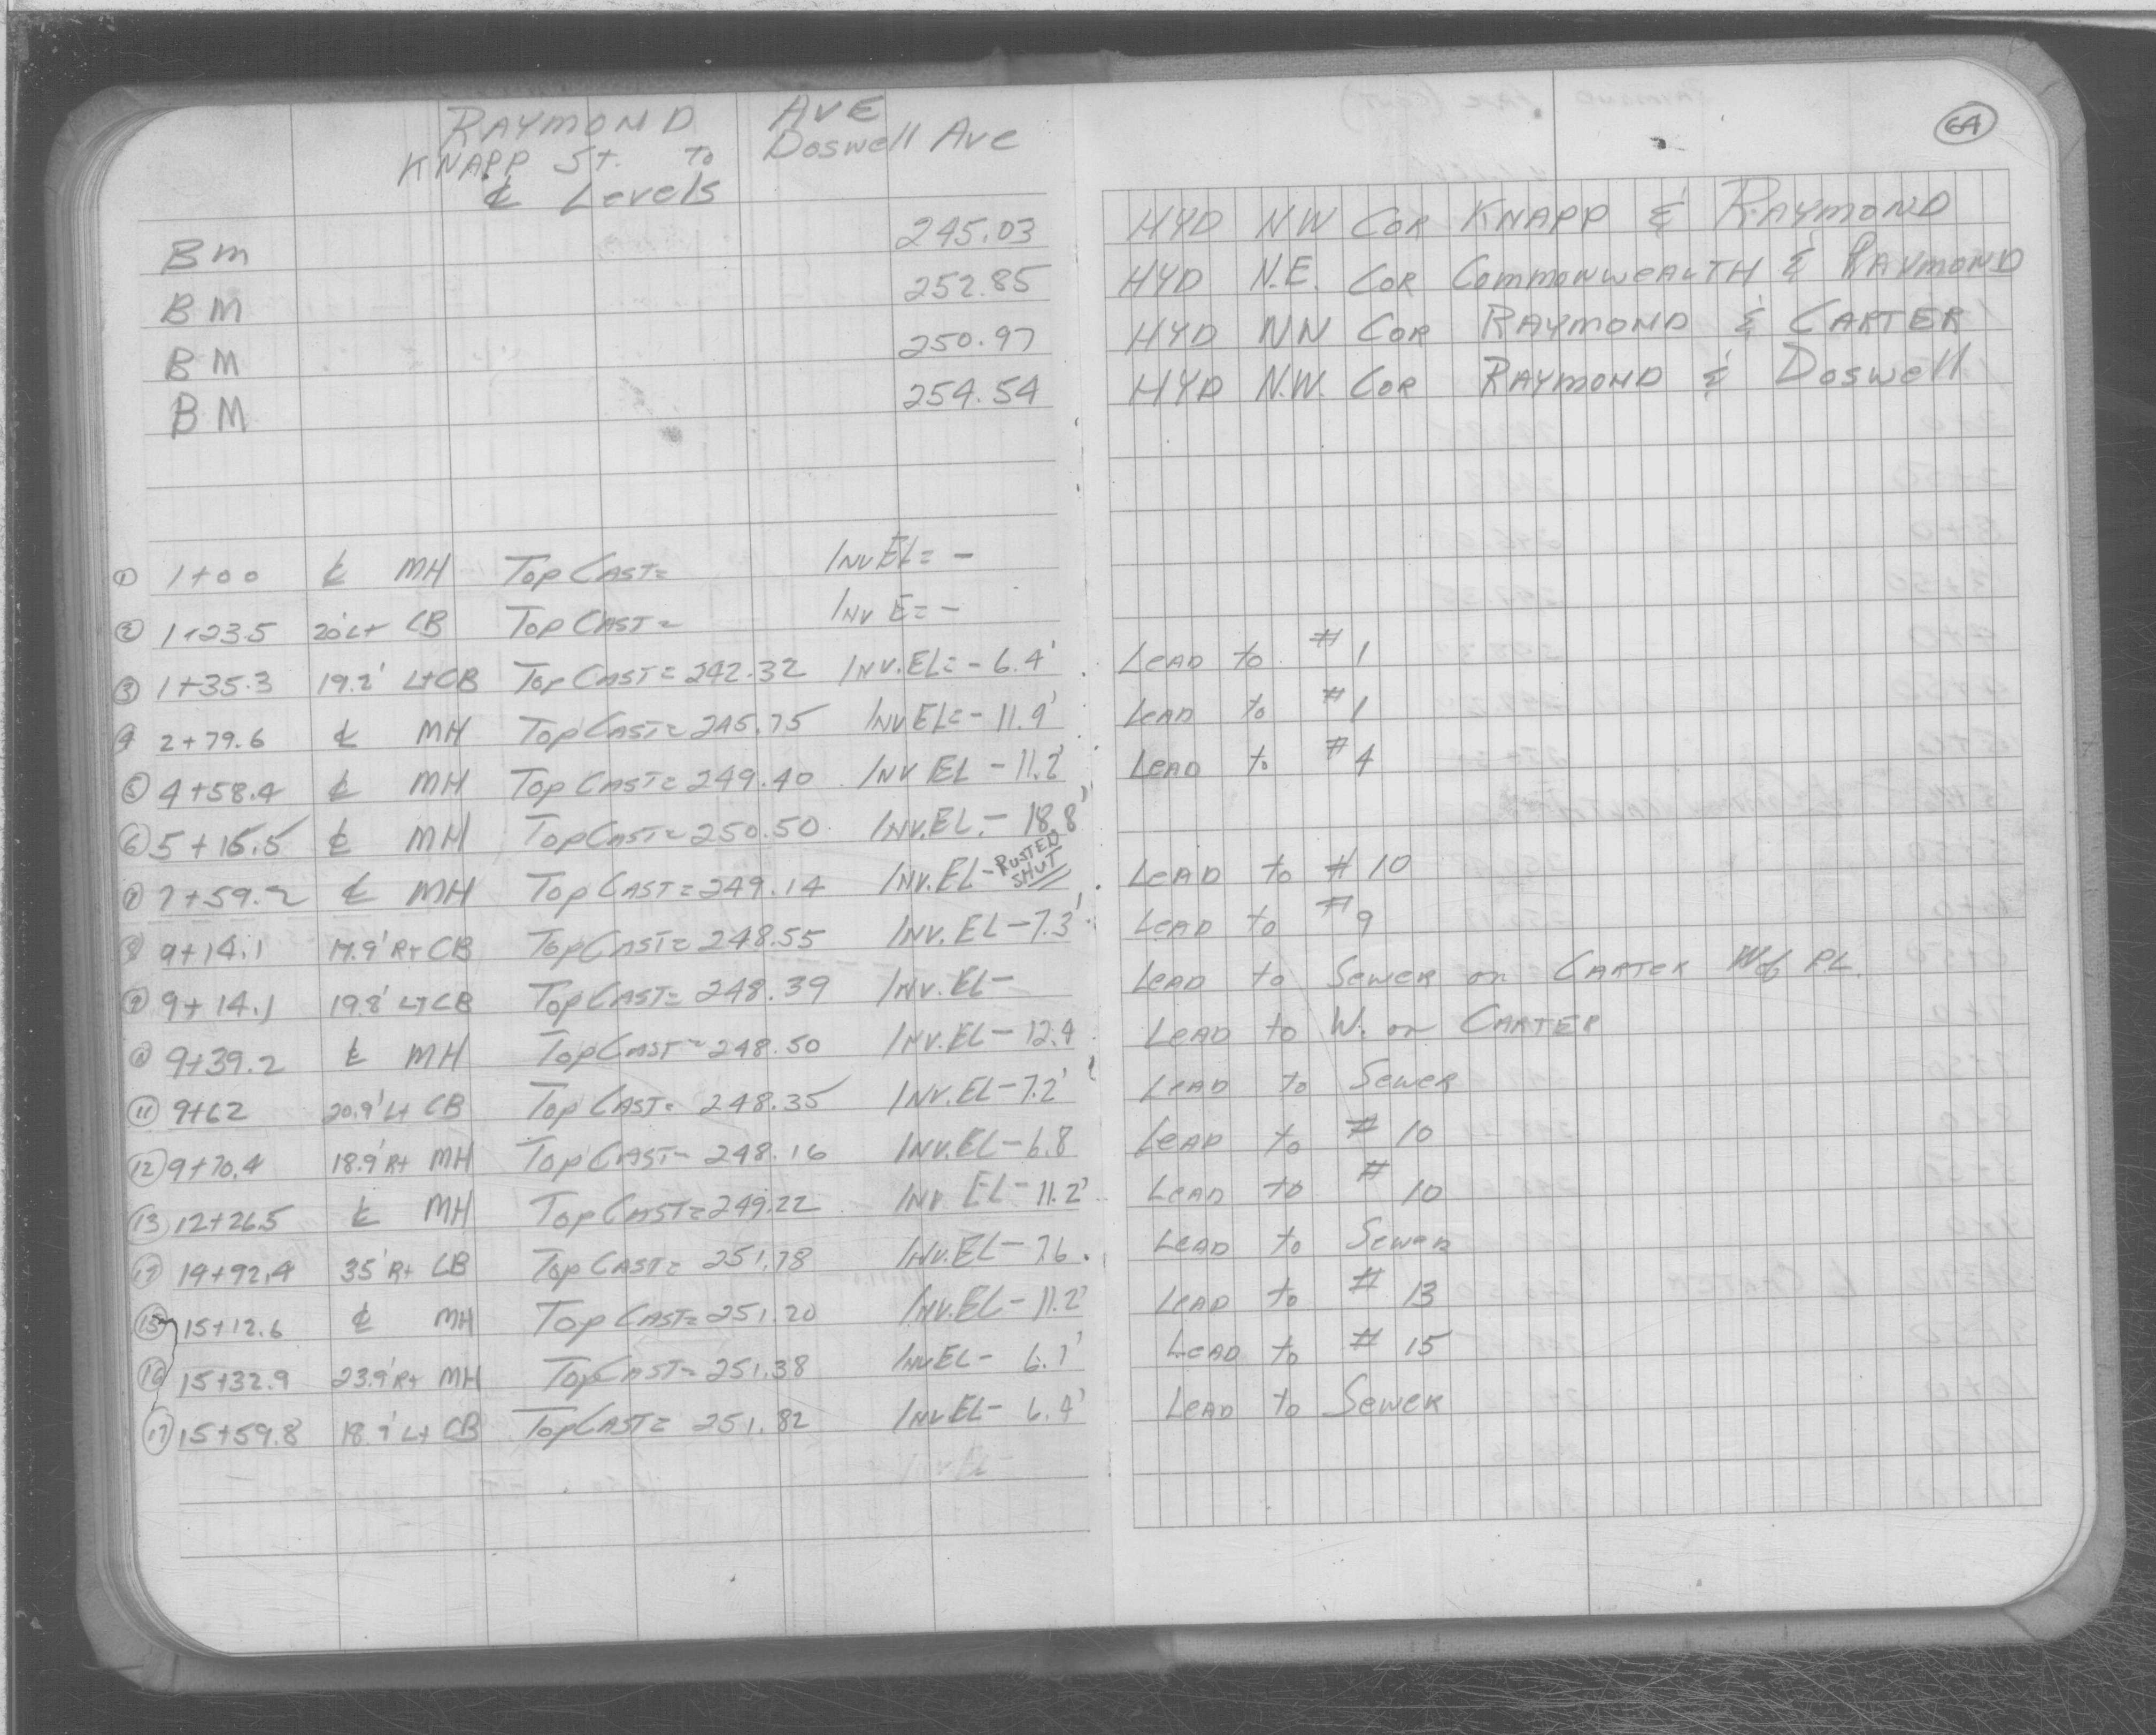 RAYMOND AVE
KNAPP St. to Doswell Ave
℄ Levels
64
BM 245.03 HYD NW COR KNAPP & RAYMOND
BM 252.85 HYD N.E. COR COMMONWEALTH & RAYMOND
BM 250.97 HYD NW COR RAYMOND & CARTER
BM 254.54 HYD N.W. COR RAYMOND & Doswell
① 1+00 ℄ MH Top CAST= INV EL= -
② 1+23.5 20' Lt CB Top CAST= INV E= - LEAD to #1
③ 1+35.3 19.2' Lt CB Top CAST= 242.32 INV. EL= - 6.4' LEAD to #1
④ 2+79.6 ℄ MH Top CAST= 245.75 INV EL= - 11.9' LEAD to #4
⑤ 4+58.4 ℄ MH Top CAST= 249.40 INV EL - 11.2'
⑥ 5+15.5 ℄ MH Top CAST= 250.50 INV. EL. - 18.8' LEAD to #10
⑦ 7+59.2 ℄ MH Top CAST= 249.14 INV. EL - RUSTED SHUT LEAD to #9
⑧ 9+14.1 17.9' Rt CB Top CAST= 248.55 INV. EL - 7.3' LEAD to Sewer on CARTER W of P.L.
⑨ 9+14.1 19.8' Lt CB Top CAST= 248.39 INV. EL - LEAD to W. on CARTER
⑩ 9+39.2 ℄ MH Top CAST= 248.50 INV. EL - 12.4 LEAD to Sewer
⑪ 9+62 20.9' Lt CB Top CAST= 248.35 INV. EL - 7.2' LEAD to #10
⑫ 9+70.4 18.9' Rt MH Top CAST= 248.16 INV. EL - 6.8 LEAD to #10
⑬ 12+26.5 ℄ MH Top CAST= 249.22 INV. EL - 11.2' LEAD to Sewer
14+92.4 35' Rt CB Top CAST= 251.78 INV. EL - 7.6 LEAD to #13
⑮ 15+12.6 ℄ MH Top CAST= 251.20 INV. EL - 11.2' LEAD to #15
⑯ 15+32.9 23.9' Rt MH Top CAST= 251.38 INV EL - 6.1' LEAD to Sewer
⑰ 15+59.8 18.9' Lt CB Top CAST= 251.82 INV EL - 6.4'